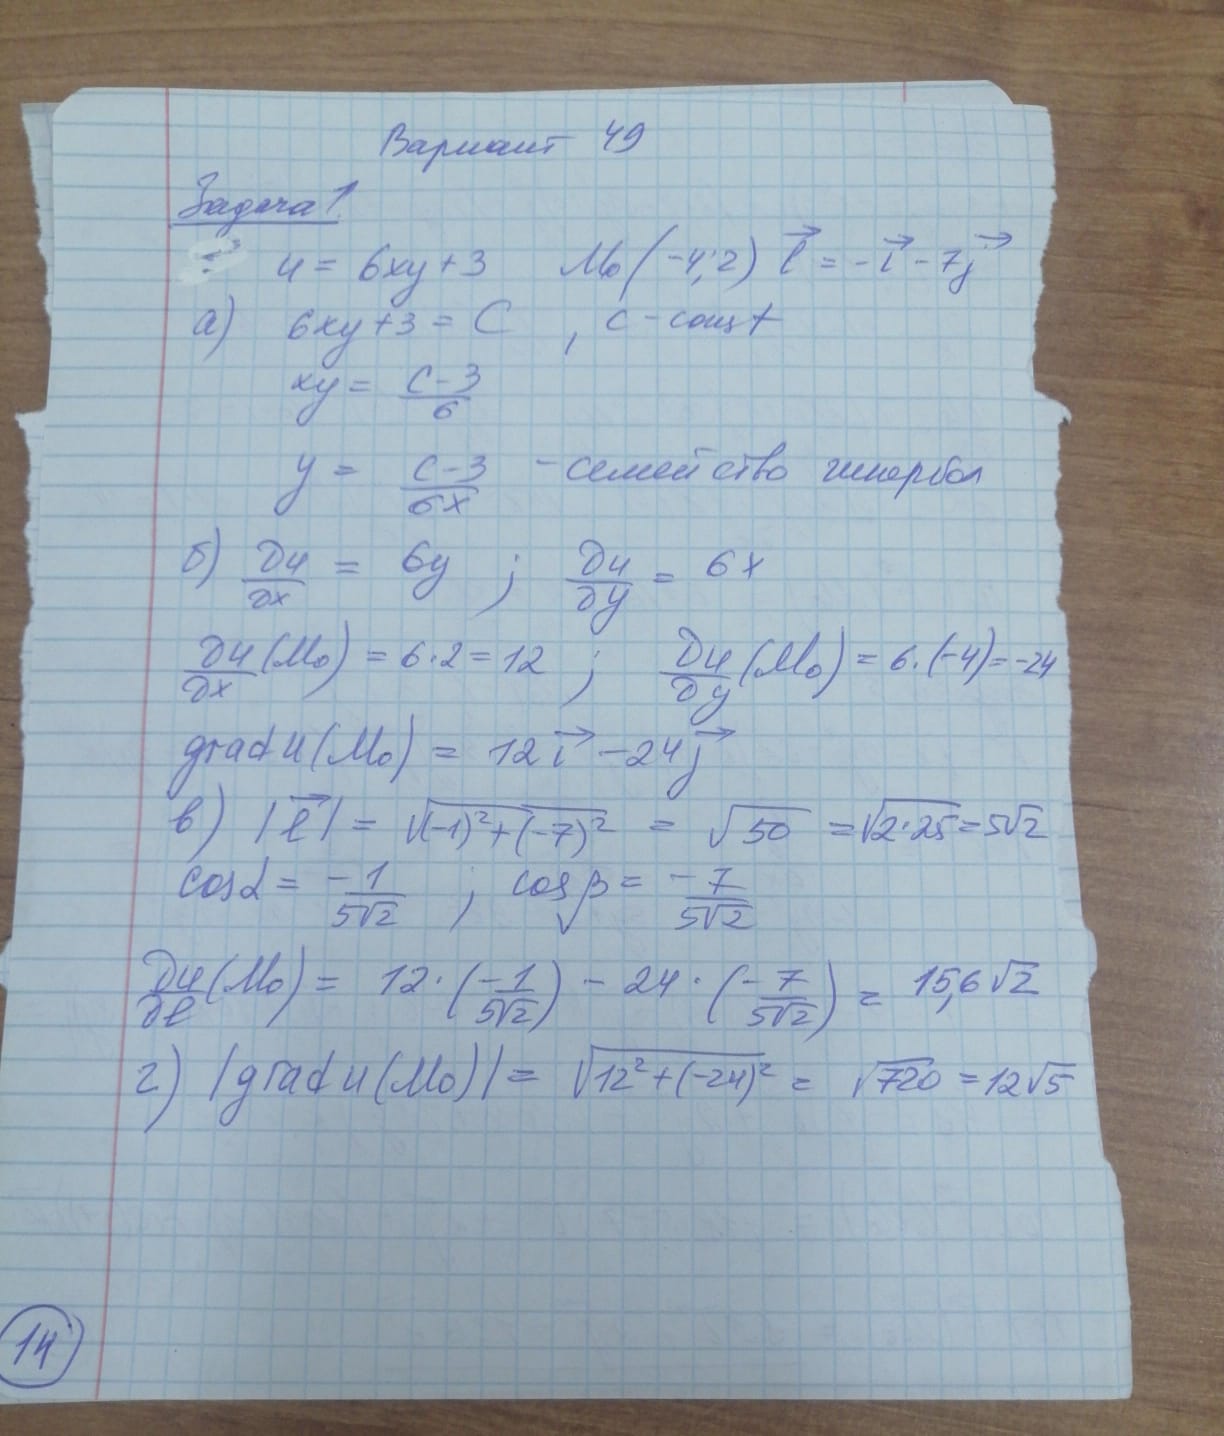 Вариант 49
Задача 1.
u = 6xy + 3 M₀(-4; 2) l⃗ = -i⃗ - 7j⃗
а) 6xy + 3 = C , c - const
xy = (c-3)/6
y = (c-3)/(6x) - семейство гипербол
б) ∂u/∂x = 6y ; ∂u/∂y = 6x
∂u/∂x (M₀) = 6·2 = 12 ; ∂u/∂y (M₀) = 6·(-4) = -24
grad u(M₀) = 12i⃗ - 24j⃗
в) |l⃗| = √((-1)²+(-7)²) = √50 = √(2·25) = 5√2
cosα = -1/(5√2) ; cosβ = -7/(5√2)
∂u/∂l (M₀) = 12·(-1/(5√2)) - 24·(-7/(5√2)) = 15,6√2
г) |grad u(M₀)| = √(12²+(-24)²) = √720 = 12√5
14